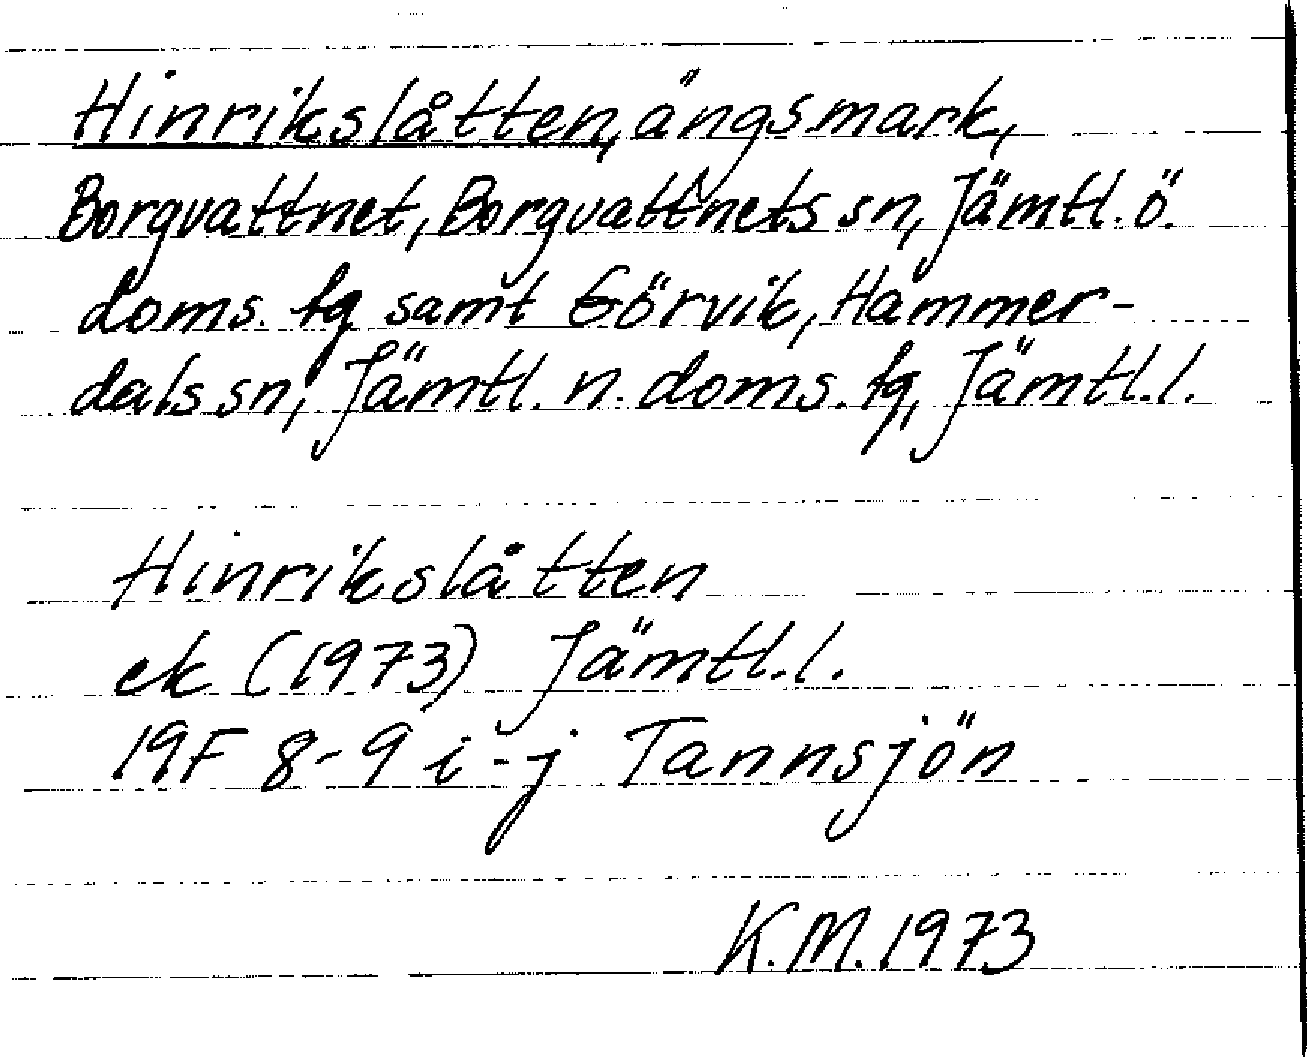 Hinrikslåtten, ängsmark,
Borgvattnet, Borgvattnets sn, Jämtl. ö.
doms. fq samt Görvik, Hammer-
dals sn, Jämtl. n. doms. fq, Jämtl. l.
Hinrikslåtten
ek (1973) Jämtl. l.
19F 8-9 i-j Tannsjön
K.M. 1973